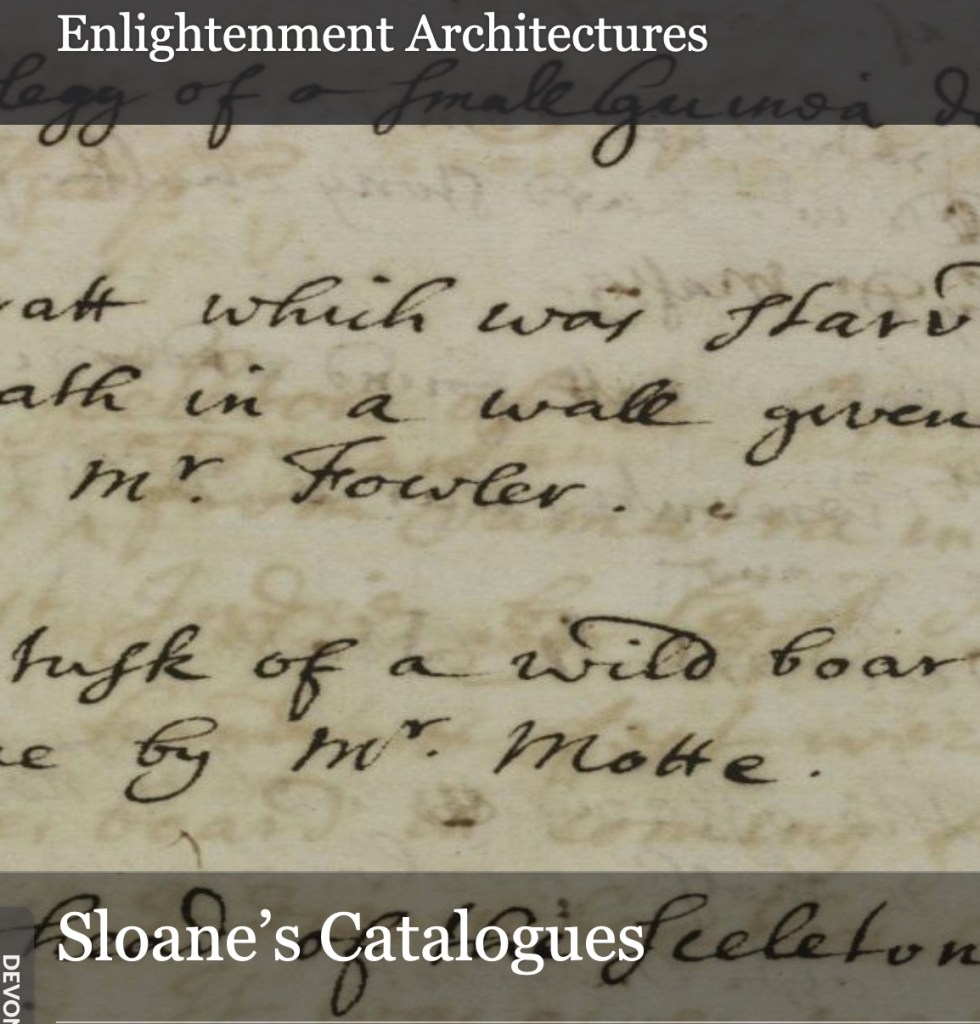 Enlightenment Architectures
legy of a small Guinea d
ratt which was starv
ath in a wall given
mr. Fowler.
tusk of a wild boar
me by mr. Motte.
Sloane's Catalogues
head of the sceleton
DEVON